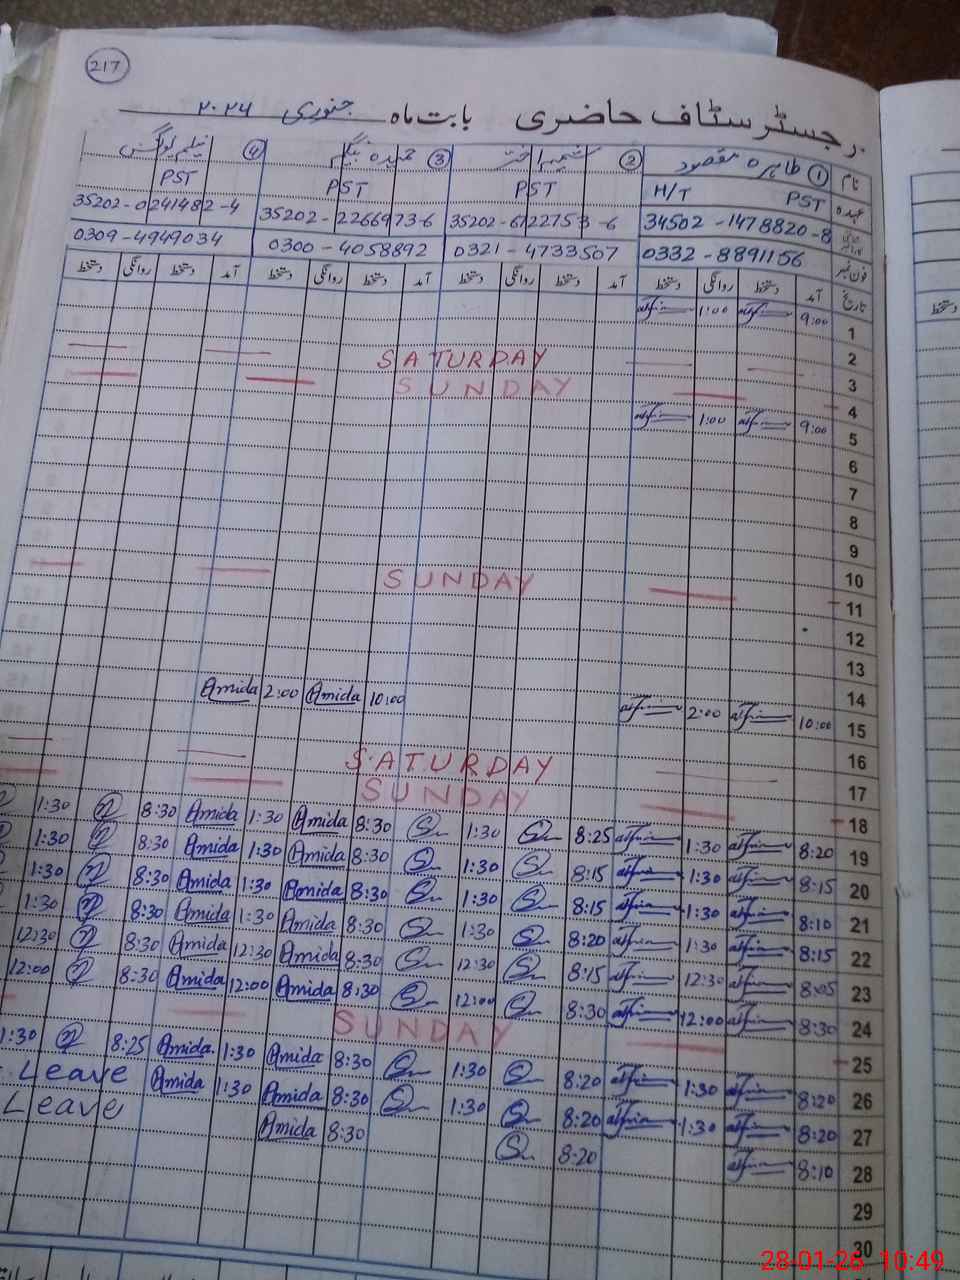 217
رجسٹر سٹاف حاضری بابت ماہ جنوری
نام ① طاہرہ مقصود ② شمیم اختر ③ حمیدہ بیگم ④
عہدہ PST H/T PST PST PST
34502-1478820-8 35202-6122753-6 35202-2266973-6 35202-0241482-4
فون نمبر 0332-8891156 0321-4733507 0300-4058892 0309-4949034
تاریخ آمد دستخط روانگی دستخط آمد دستخط روانگی دستخط آمد دستخط روانگی دستخط آمد دستخط روانگی دستخط
1 9:00 1:00
2
3 SATURDAY
4 SUNDAY
5 9:00 1:00
6
7
8
9
10
11 SUNDAY
12
13
14
15 10:00 2:00 10:00 Amida 2:00 Amida
16
17 SATURDAY
18 SUNDAY
19 8:20 1:30 8:25 1:30 8:30 Amida 1:30 Amida 8:30 1:30
20 8:15 1:30 8:15 1:30 8:30 Amida 1:30 Amida 8:30 1:30
21 8:10 1:30 8:15 1:30 8:30 Amida 1:30 Amida 8:30 1:30
22 8:15 1:30 8:20 1:30 8:30 Amida 1:30 Amida 8:30 1:30
23 8:05 12:30 8:15 12:30 8:30 Amida 12:30 Amida 8:30 12:30
24 8:30 12:00 8:30 12:00 8:30 Amida 12:00 Amida 8:30 12:00
25 SUNDAY
26 8:20 1:30 8:20 1:30 8:30 Amida 1:30 Amida 8:25 1:30
27 8:20 1:30 8:20 1:30 8:30 Amida 1:30 Amida Leave
28 8:10 8:20 8:30 Amida Leave
29
30
28-01-26 10:49